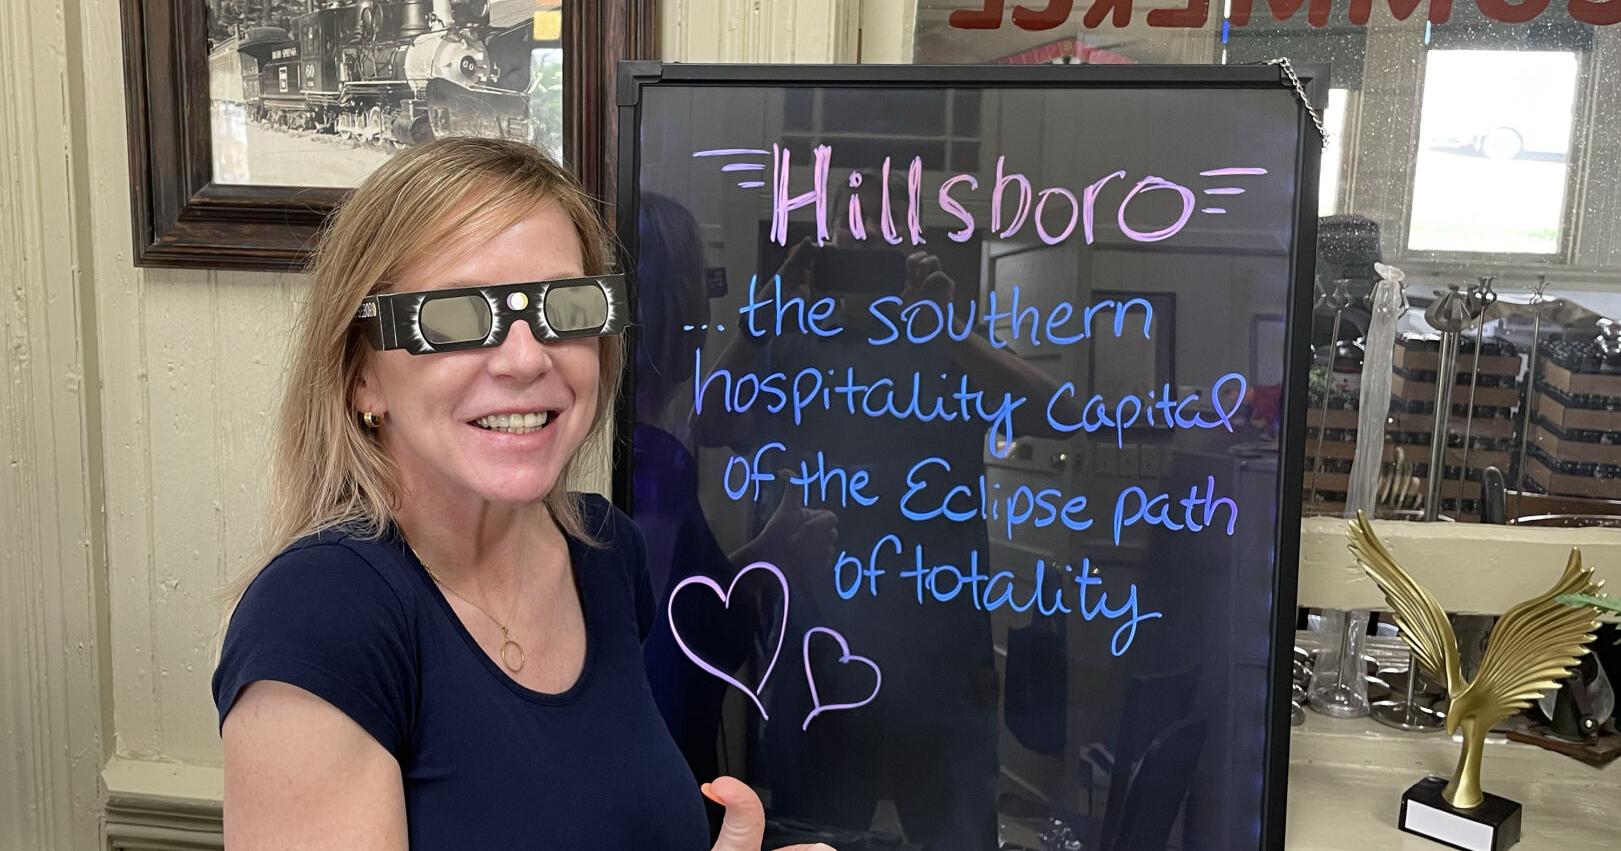 COMMERCE
Hillsboro
... the southern
hospitality Capital
of the Eclipse path
of totality
60